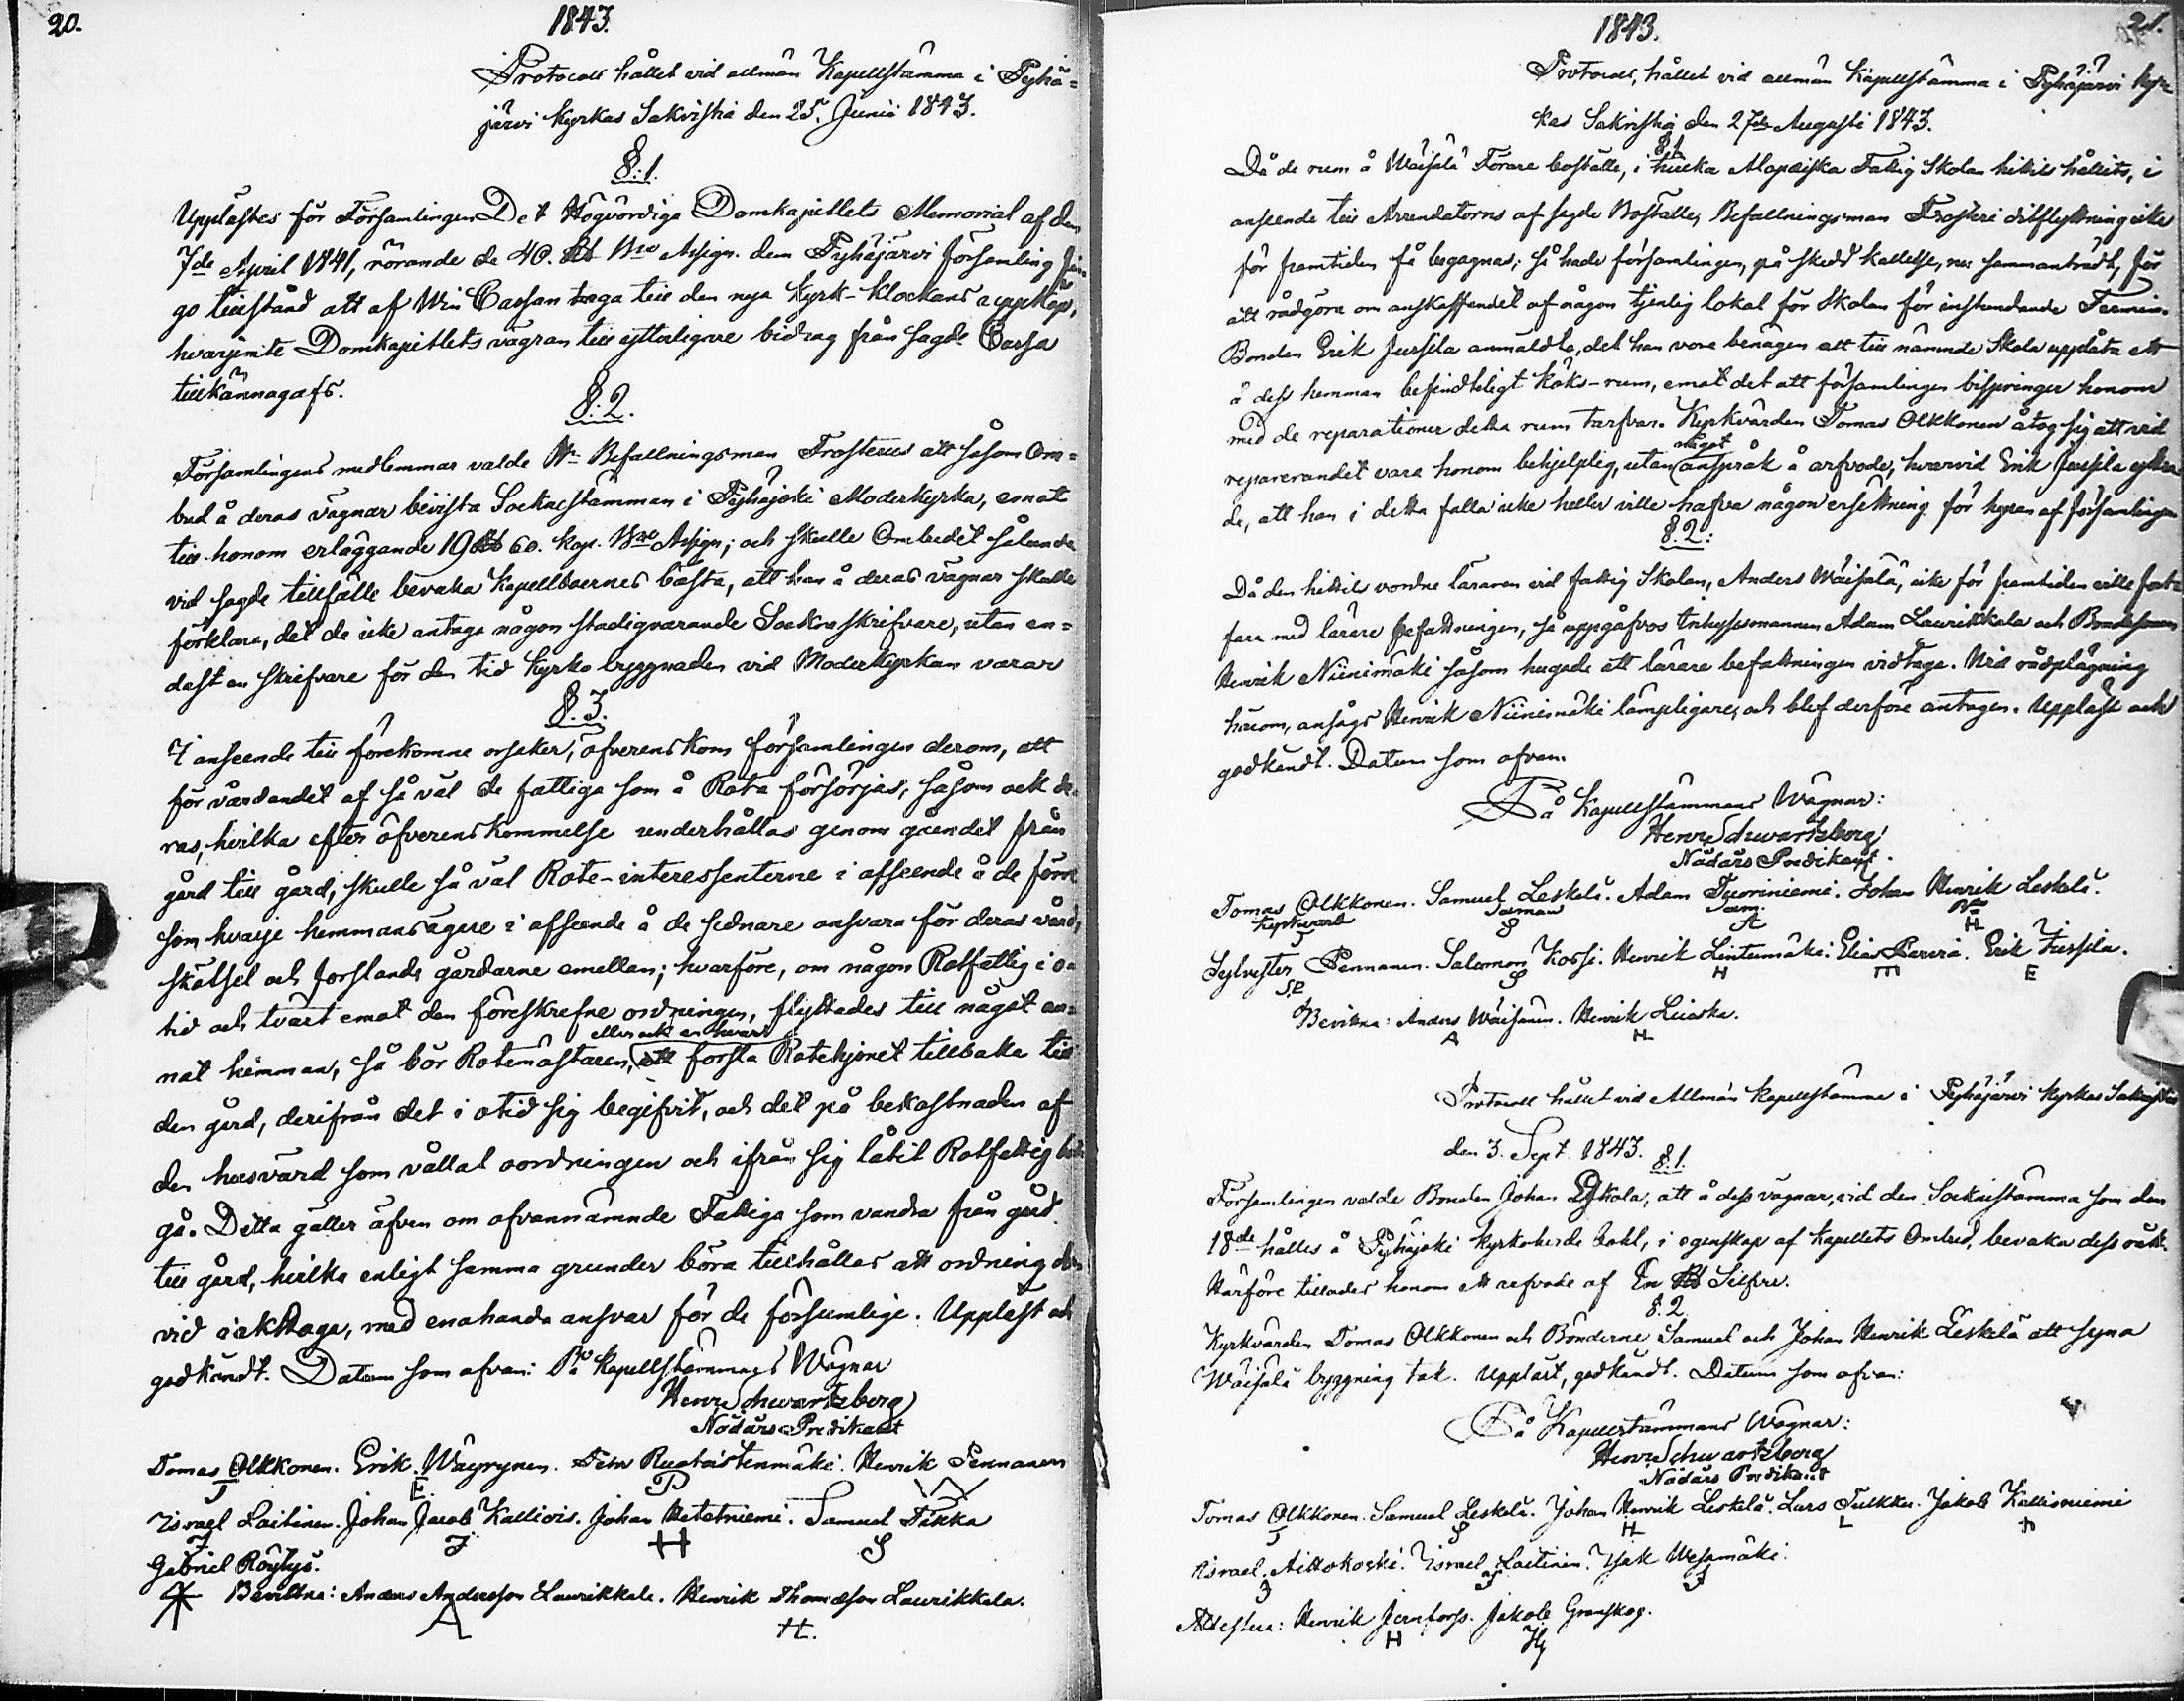 20.
1843.
Protocoll hållet vid allmän Kapellstämma i Pyhä-
järvi Kyrkas Sakristia den 25. Junii 1843.
§.1.
Upplästes för Församlingen Det Högvördiga Domkapitlets Memorial af den
7de April 1841, rörande de 40. Rb Bco Assign. dem Pyhäjärvi församling fin-
go tillstånd att af Win Cassan taga till den nya Kyrk-klockans uppköp,
hvarjemte Domkapitlets vägran till ytterligare bidrag från sagde Cassa
tillkännagafs.
§.2.
Församlingens medlemmar valde Hr Befallningsman Frosterus att såsom Om-
bud å deras vägnar bevista Socknestämman i Pyhäjoki Moderkyrka, emot
till honom erläggande 19 Rb 60. kop. Bco Assign; och skulle Ombudet sålunda
vid sagde tillfälle bevaka Kapellboernes bästa, att han å deras vägnar skulle
förklara, det de icke antaga någon stadigvarande Sockneskrifvare, utan en-
dast en skrifvare för den tid Kyrko byggnaden vid Moderkyrkan varar
§.3.
I anseende till förekomne orsaker, öfverenskom församlingen derom, att
för vårdandet af så väl de fattiga som å Rota försörjas, såsom ock de-
ras, hvilka efter öfverenskommelse underhållas genom gåendet från
gård till gård, skulle så väl Rote-interessenterne i afseende å de förre
som hvarje hemmansägare i afseende å de sednare ansvara för deras vård,
skötsel och forslande gårdarne emellan; hvarföre, om någon Rotfattig i o-
tid och tvärt emot den föreskrefne ordningen, flyttades till något an-
eller ock en hvar
nat hemman, så bör Rotemästaren, att forsla Rotehjonet tillbaka till
den gård, derifrån det i otid sig begifvit, och det på bekostnaden af
den husvärd som vållat oordningen och ifrån sig låtit Rotfattig bort
gå. Detta gäller äfven om ofvannämnde Fattiga som vandra från gård
till gård, hvilka enligt samma grunder böra tillhållas att ordning der-
vid iakttaga, med enahanda ansvar för de försumlige. Uppläst och
godkändt. Datum som ofvan: På Kapellstämmans Wägnar
Henr Schwartzberg
Nådårs Predikant
Tomas Olkkonen. Erik Wäyrynen. Petter Ruotoistenmäki. Henrik Pennanen
T E. P
Israel Laitinen. Johan Jacob Kalliois. Johan Hetetniemi. Samuel Tikka
I J H S
Gabriel Röytyä.
Bevittna: Anders Andersson Laurikkala. Henrik Thomasson Laurikkala.
A H.
21.
1843.
Protocoll, hållet vid allmän Kapellstämma i Pyhäjärvi Kyr-
kas Sakristia den 27de Augusti 1843.
§.1
Då de rum å Wäisälä Förare boställe, i hvilka Alopaeiska Fattig Skolan hittils hållits, i
anseende till Arrendatorns af sagde Boställe, Befallningsman Frosteri ditflyttning icke
för framtiden få begagnas; så hade församlingen, på skedd kallelse, nu sammanträdt, för
att rådgöra om anskaffandet af någon tjenlig lokal för Skolan för instundande Termin.
Bonden Erik Jussila anmäldte, det han vore benägen att till nämnde Skola upplåta ett
å dess hemman befindteligt köks-rum, emot det att församlingen bispringer honom
med de reparationer detta rum tarfvar. Kyrkvärden Tomas Olkkonen åtog sig att vid
något
reparerandet vara honom behjelplig, utan anspråk å arfvode, hvarvid Erik Jussila yttra-
de, att han i detta falla icke heller ville hafva någon ersättning för hyran af församlingen
§.2:
Då den hittils vordne läraren vid fattig Skolan, Anders Wäisälä, icke för framtiden ville fort-
fara med lärare befattningen, så uppgåfvos Inhysesmannen Adam Laurikkala och Bondesonen
Henrik Niinimäki såsom hugade att lärare befattningen vidtaga. Vid rådplägning
härom, ansågs Henrik Niinimäki lämpligare, och blef derföre antagen. Uppläst och
godkändt. Datum som ofvan.
På Kapellstämmans Wägnar:
Henr Schwartzberg
Nådårs Predikant.
Tomas Olkkonen. Samuel Leskelä. Adam Tuoriniemi. Johan Henrik Leskelä.
Kyrkvärd
T S A H
Sylvester Pennanen. Salomon Kossi. Henrik Lintumäki. Elias Pareria. Erik Jussila.
S.P S H E E
Bevittna: Anders Wäisänen. Henrik Luiaska.
A H
Protocoll hållet vid Allmän Kapellstämma i Pyhäjärvi Kyrkas Sakristia
den 3. Sept. 1843.
§.1.
Församlingen valde Bonden Johan Eskola, att å dess vägnar, vid den Socknestämma som den
18de hålles å Pyhäjoki kyrkoherde bohl, i egenskap af Kapellets Ombud, bevaka dess rätt.
Härföre tillades honom ett arfvode af En Rb Silfver.
§.2
Kyrkvärden Tomas Olkkonen och Bönderne Samuel och Johan Henrik Leskelä att syna
Wäisälä byggning tak. Uppläst, godkändt. Datum som ofvan:
På Kapellstämmans Wägnar:
Henr Schwartzberg
Nådårs Predikant
Tomas Olkkonen. Samuel Leskelä. Johan Henrik Leskelä. Lars Tulkku. Jakob Kallioniemi
T S H L
Israel Aittokoski. Israel Laitinen. Isak Wesamäki.
I I
Attestera: Henrik Jernfors. Jakob Granskog.
H